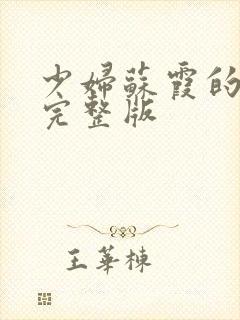 少婦蘇霞的
完整版
王華棟